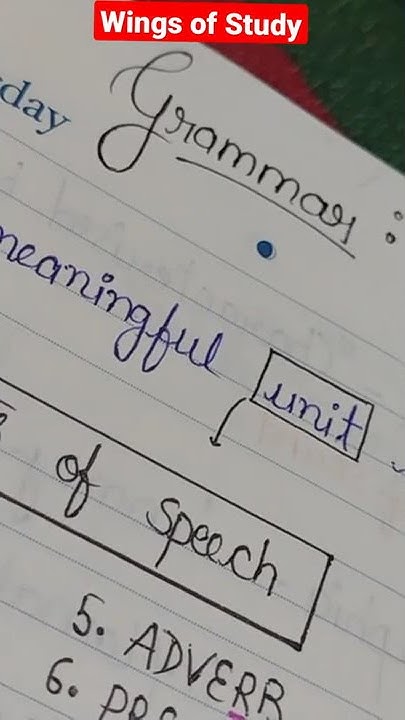 Wings of Study
day
Grammar :
meaningful unit
of speech
5. ADVERB
6.